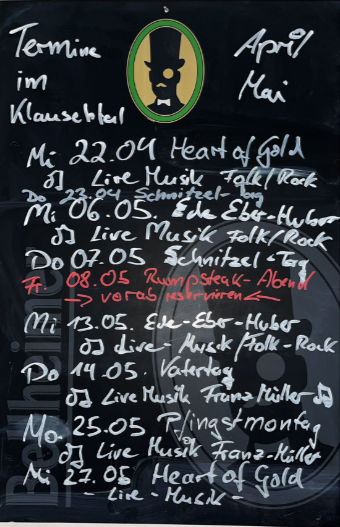 Termine April
im Mai
Klausehterl
Mi 22.04 Heart of Gold
♫ Live Musik Folk/Rock
Do 23.04 Schnitzel-Tag
Mi 06.05. Ede Eber-Huber
♫ Live Musik Folk/Rock
Do 07.05 Schnitzel-Tag
Fr. 08.05 Rumpsteak-Abend
→ vorab reservieren ←
Mi 13.05. Ede-Eber-Huber
♫ Live-Musik/Folk-Rock
Do 14.05. Vatertag
♫ Live Musik Franz Müller ♫
Mo. 25.05 Pfingstmontag
♫ Live Musik Franz-Müller
Mi 27.05 Heart of Gold
- Live-Musik -
Bellheimer